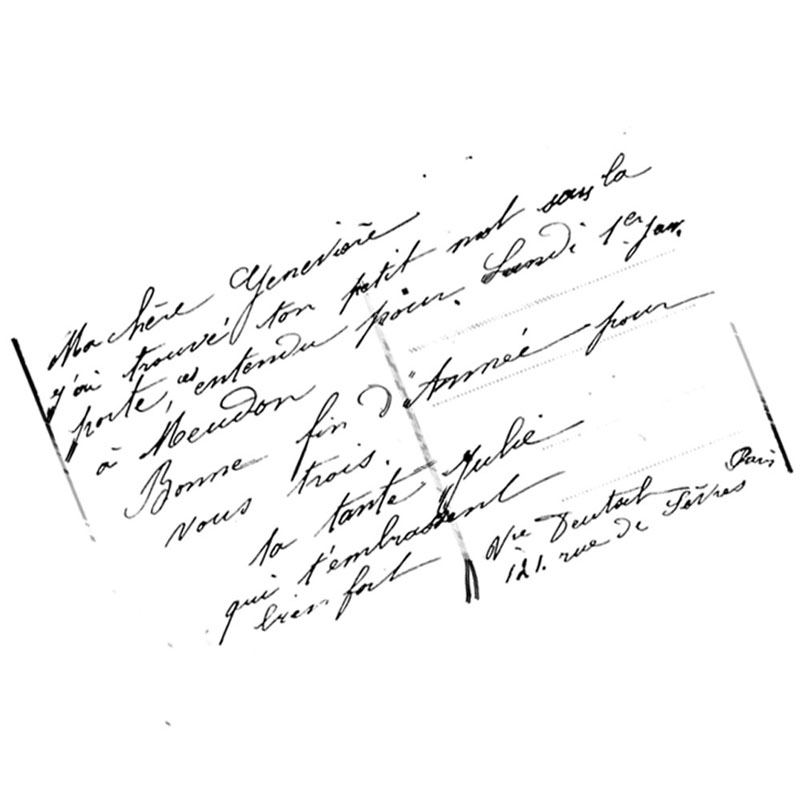 Ma chère Geneviève
j'ai trouvé ton petit mot sous la
porte, as entendu pour Lundi 1er Jan.
à Meudon
Bonne fin d'Année pour
vous trois.
ta tante Julie
qui t'embrassent
bien fort
Vve Deutsch
121. rue de Sèvres
Paris